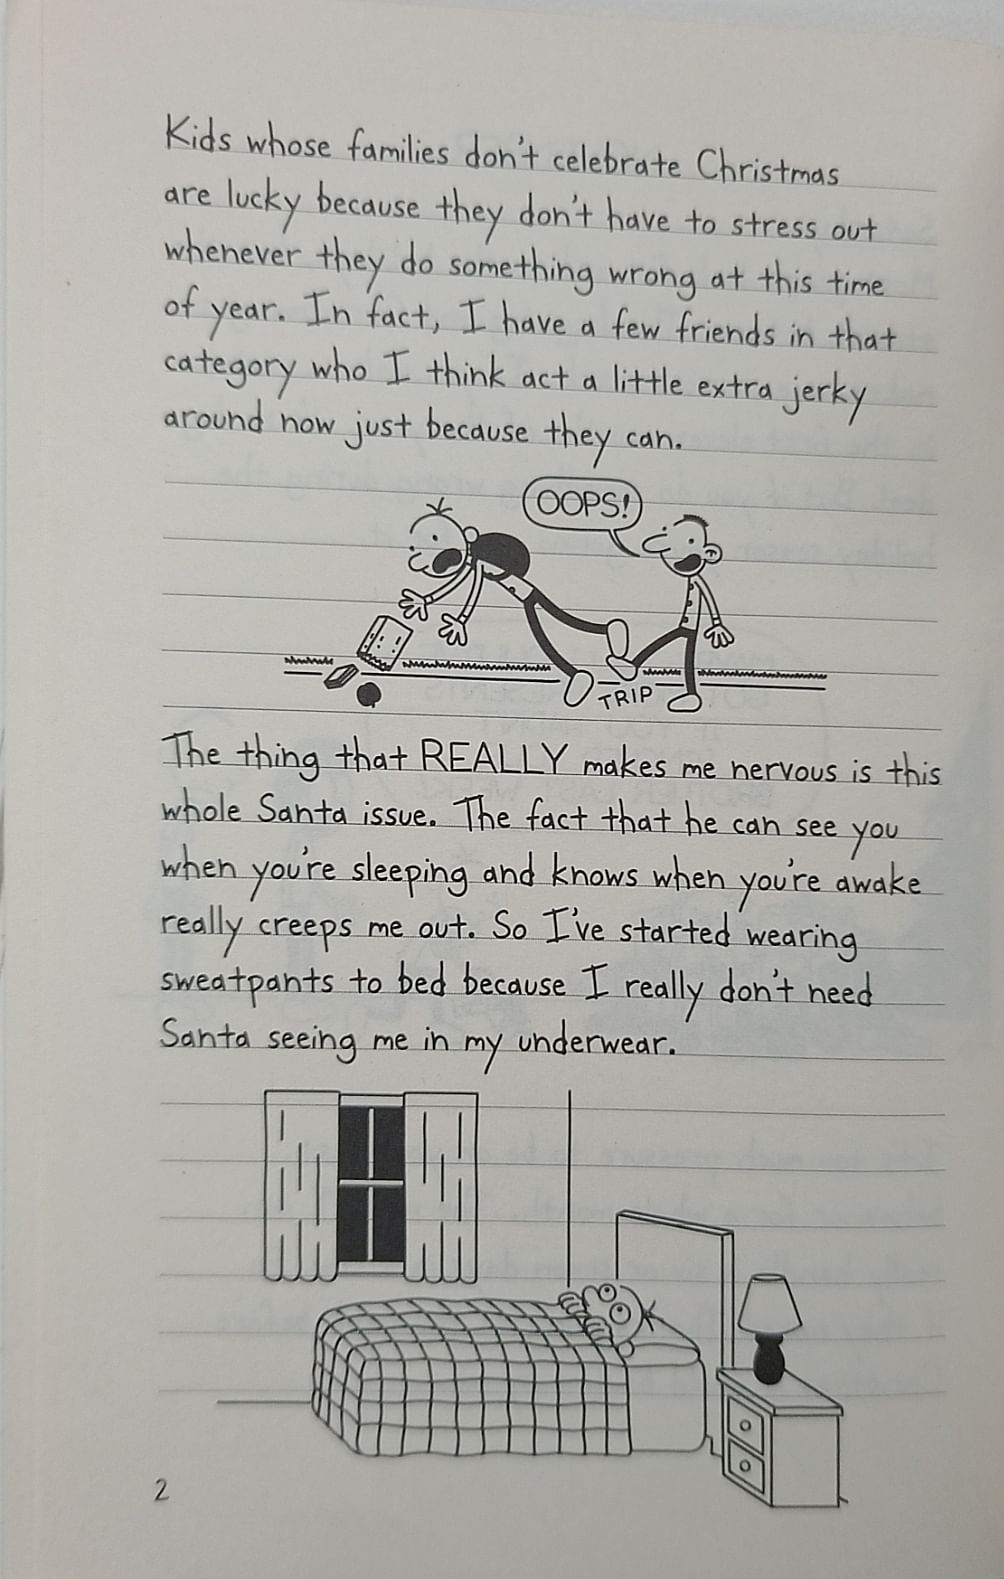 Kids whose families don't celebrate Christmas
are lucky because they don't have to stress out
whenever they do something wrong at this time
of year. In fact, I have a few friends in that
category who I think act a little extra jerky
around now just because they can.
OOPS!
TRIP
The thing that REALLY makes me nervous is this
whole Santa issue. The fact that he can see you
when you're sleeping and knows when you're awake
really creeps me out. So I've started wearing
sweatpants to bed because I really don't need
Santa seeing me in my underwear.
2